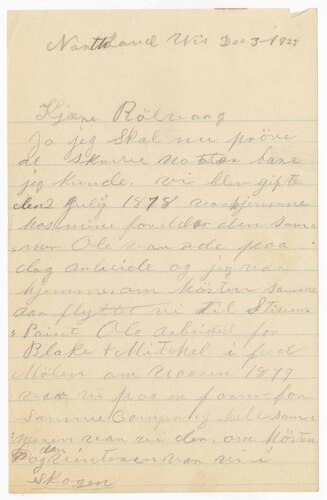 Nortland Wis Dec 3- 1925
Kjære Rölvaag
Ja jeg skal nu pröve
at skrive noter bare
jeg kunde. vi blev gifte
den 2 July 1878 var hjemme
hos mine foreldre den som-
mer Ole var ude paa
dag arbeide og jeg var
hjemme. om Hösten samme
aar flyttet vi til Stevens
Point Ole arbeidet for
Blake & Mitchel i
Möllen om Vaaren 1879
var vi paa en farm for
samme Company hele som-
meren var vi der, om Hösten
og Vinteren var vi i
Skogen